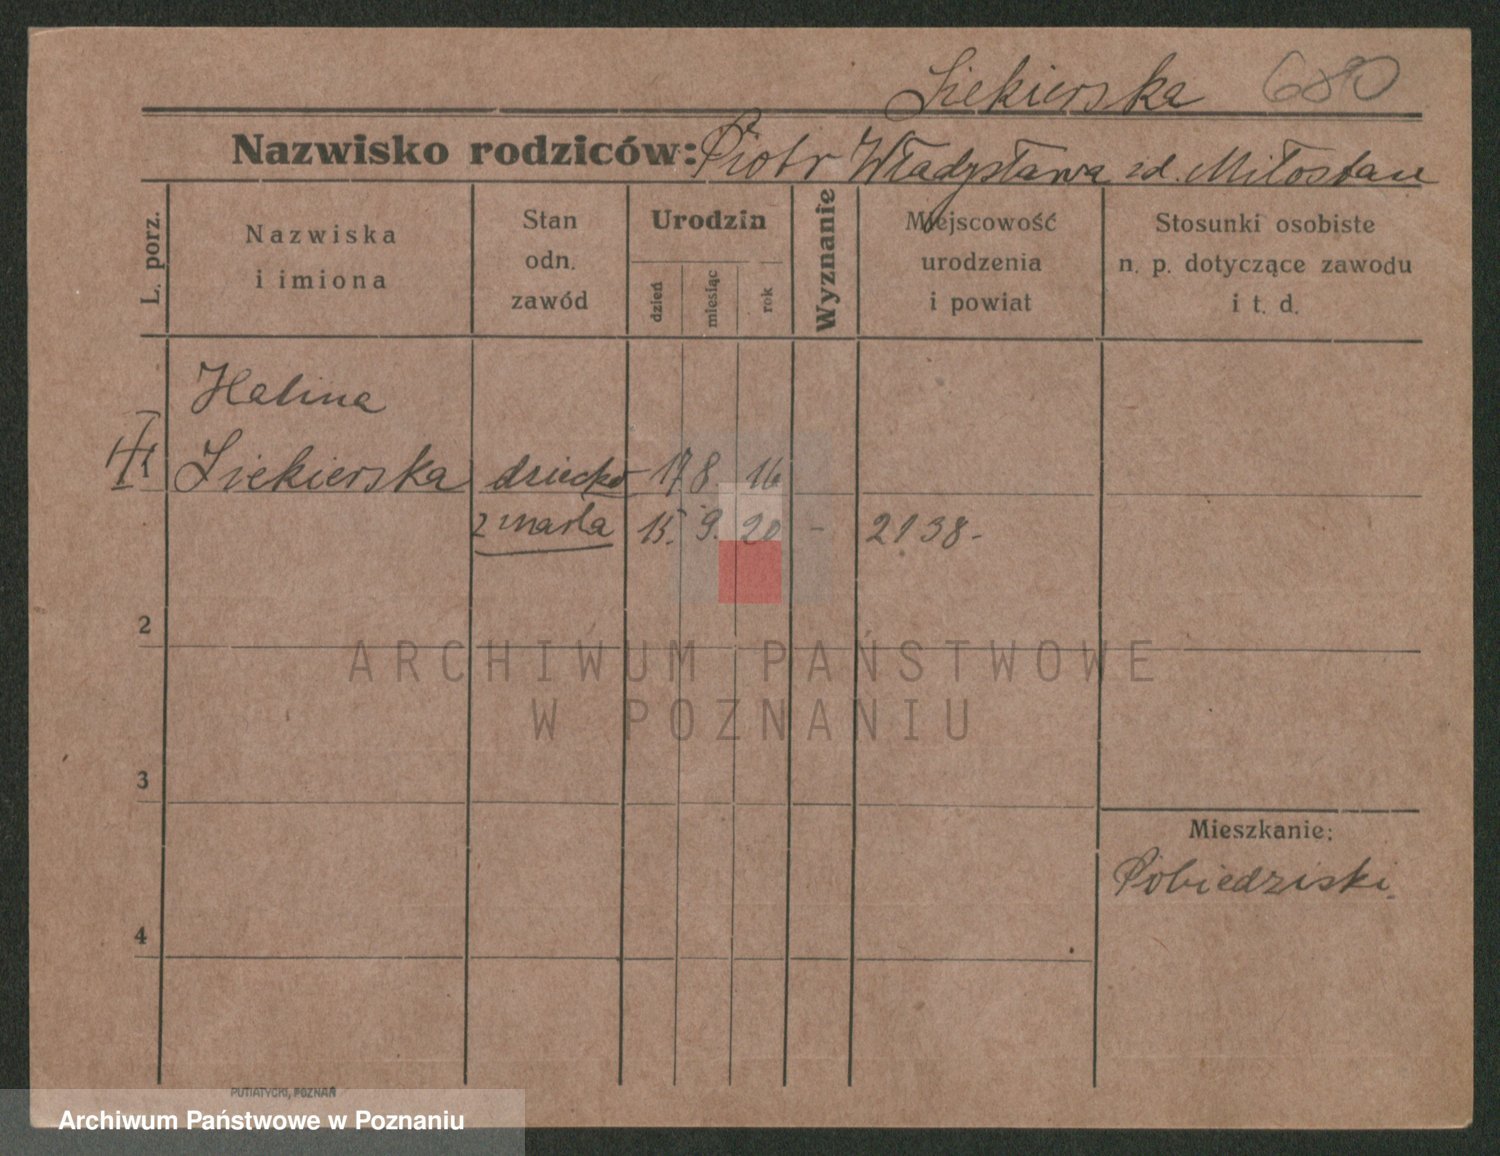 Siekierska 680
Nazwisko rodziców: Piotr Władysława zd. Miłostan
L. porz.
Nazwiska
i imiona
Stan
odn.
zawód
Urodzin
dzień
miesiąc
rok
Wyznanie
Miejscowość
urodzenia
i powiat
Stosunki osobiste
n. p. dotyczące zawodu
i t. d.
Halina
1 Siekierska dziecko 17 8 16
zmarła 15. 9. 20 - 2138.-
2
3
4
Mieszkanie:
Pobiedziski
ARCHIWUM PAŃSTWOWE
W POZNANIU
PUTIATYCKI, POZNAŃ
Archiwum Państwowe w Poznaniu